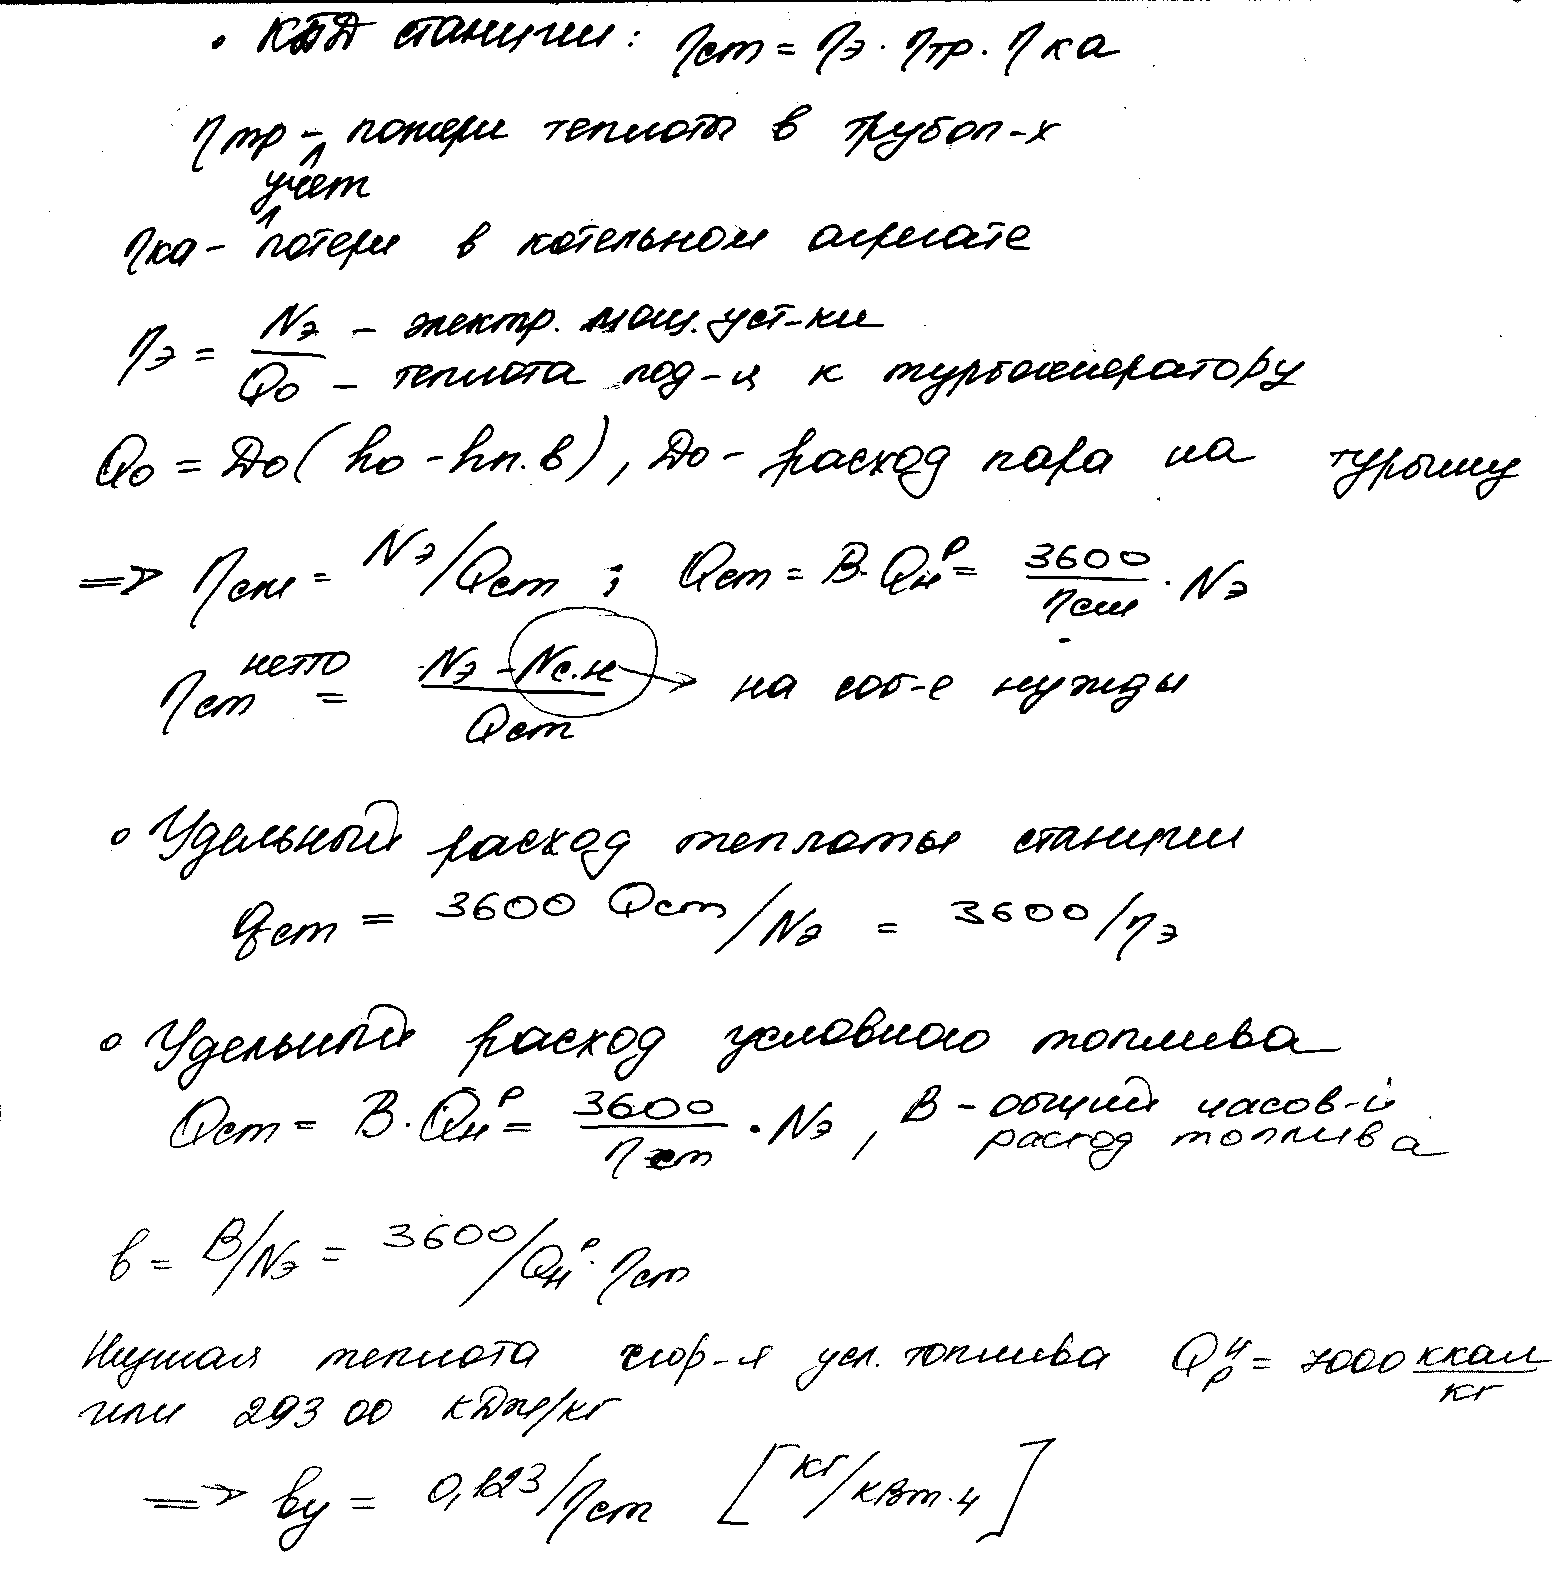 • КПД станции: ηст = ηэ · ηтр · ηка
ηтр – потери теплоты в трубоп-х
учёт
ηка – потери в котельном агрегате
ηэ = Nэ / Qо
Nэ – электр. мощ. уст-ки
Qо – теплота под-я к турбогенератору
Qо = Dо(hо – hп.в), Dо – расход пара на турбину
=> ηст = Nэ/Qст ; Qст = B·Qн^р = 3600/ηст · Nэ
ηст^нетто = (Nэ – Nс.н)/Qст → на соб-е нужды
• Удельный расход теплоты станции
qст = 3600 Qст/Nэ = 3600/ηэ
• Удельный расход условного топлива
Qст = B·Qн^р = 3600/ηст · Nэ, B – общий часов-й расход топлива
b = B/Nэ = 3600/Qн^р · ηст
Низшая теплота сгор-я усл. топлива Qр^н = 7000 ккал/кг
или 29300 кДж/кг
=> bу = 0,123/ηст [кг/кВт·ч]